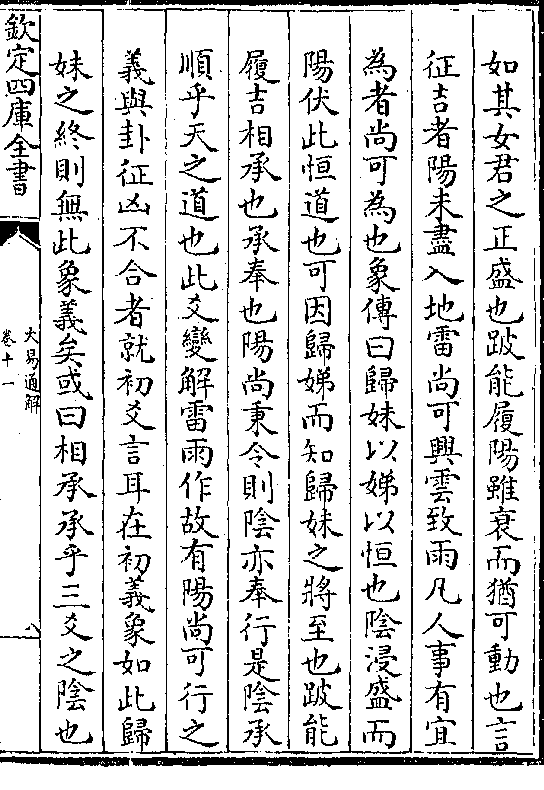 如其女君之正盛也跛能履陽雖衰而猶可動也言
征吉者陽未盡入地雷尚可興雲致雨凡人事有宜
為者尚可為也象傳曰歸妹以娣以恒也陰浸盛而
陽伏此恒道也可因歸娣而知歸妹之將至也跛能
履吉相承也承奉也陽尚秉令則陰亦奉行是陰承
順乎天之道也此爻變解雷雨作故有陽尚可行之
義與卦征凶不合者就初爻言耳在初義象如此歸
妹之終則無此象義矣或曰相承承乎三爻之陰也
欽定四庫全書
大易通解
卷十一
八